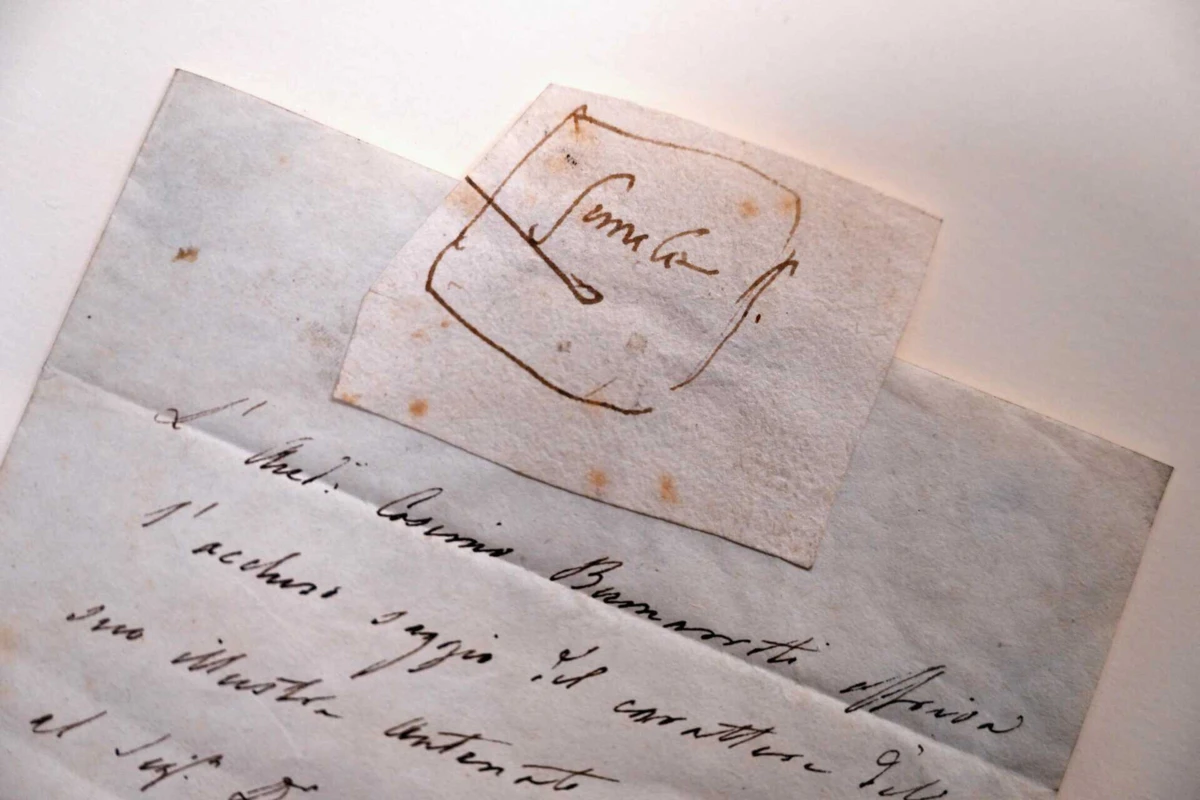 simile
L' Aud: Cosimo Buonarroti offriva
l' accluso saggio del carattere del
suo illustre antenato
al Sig.